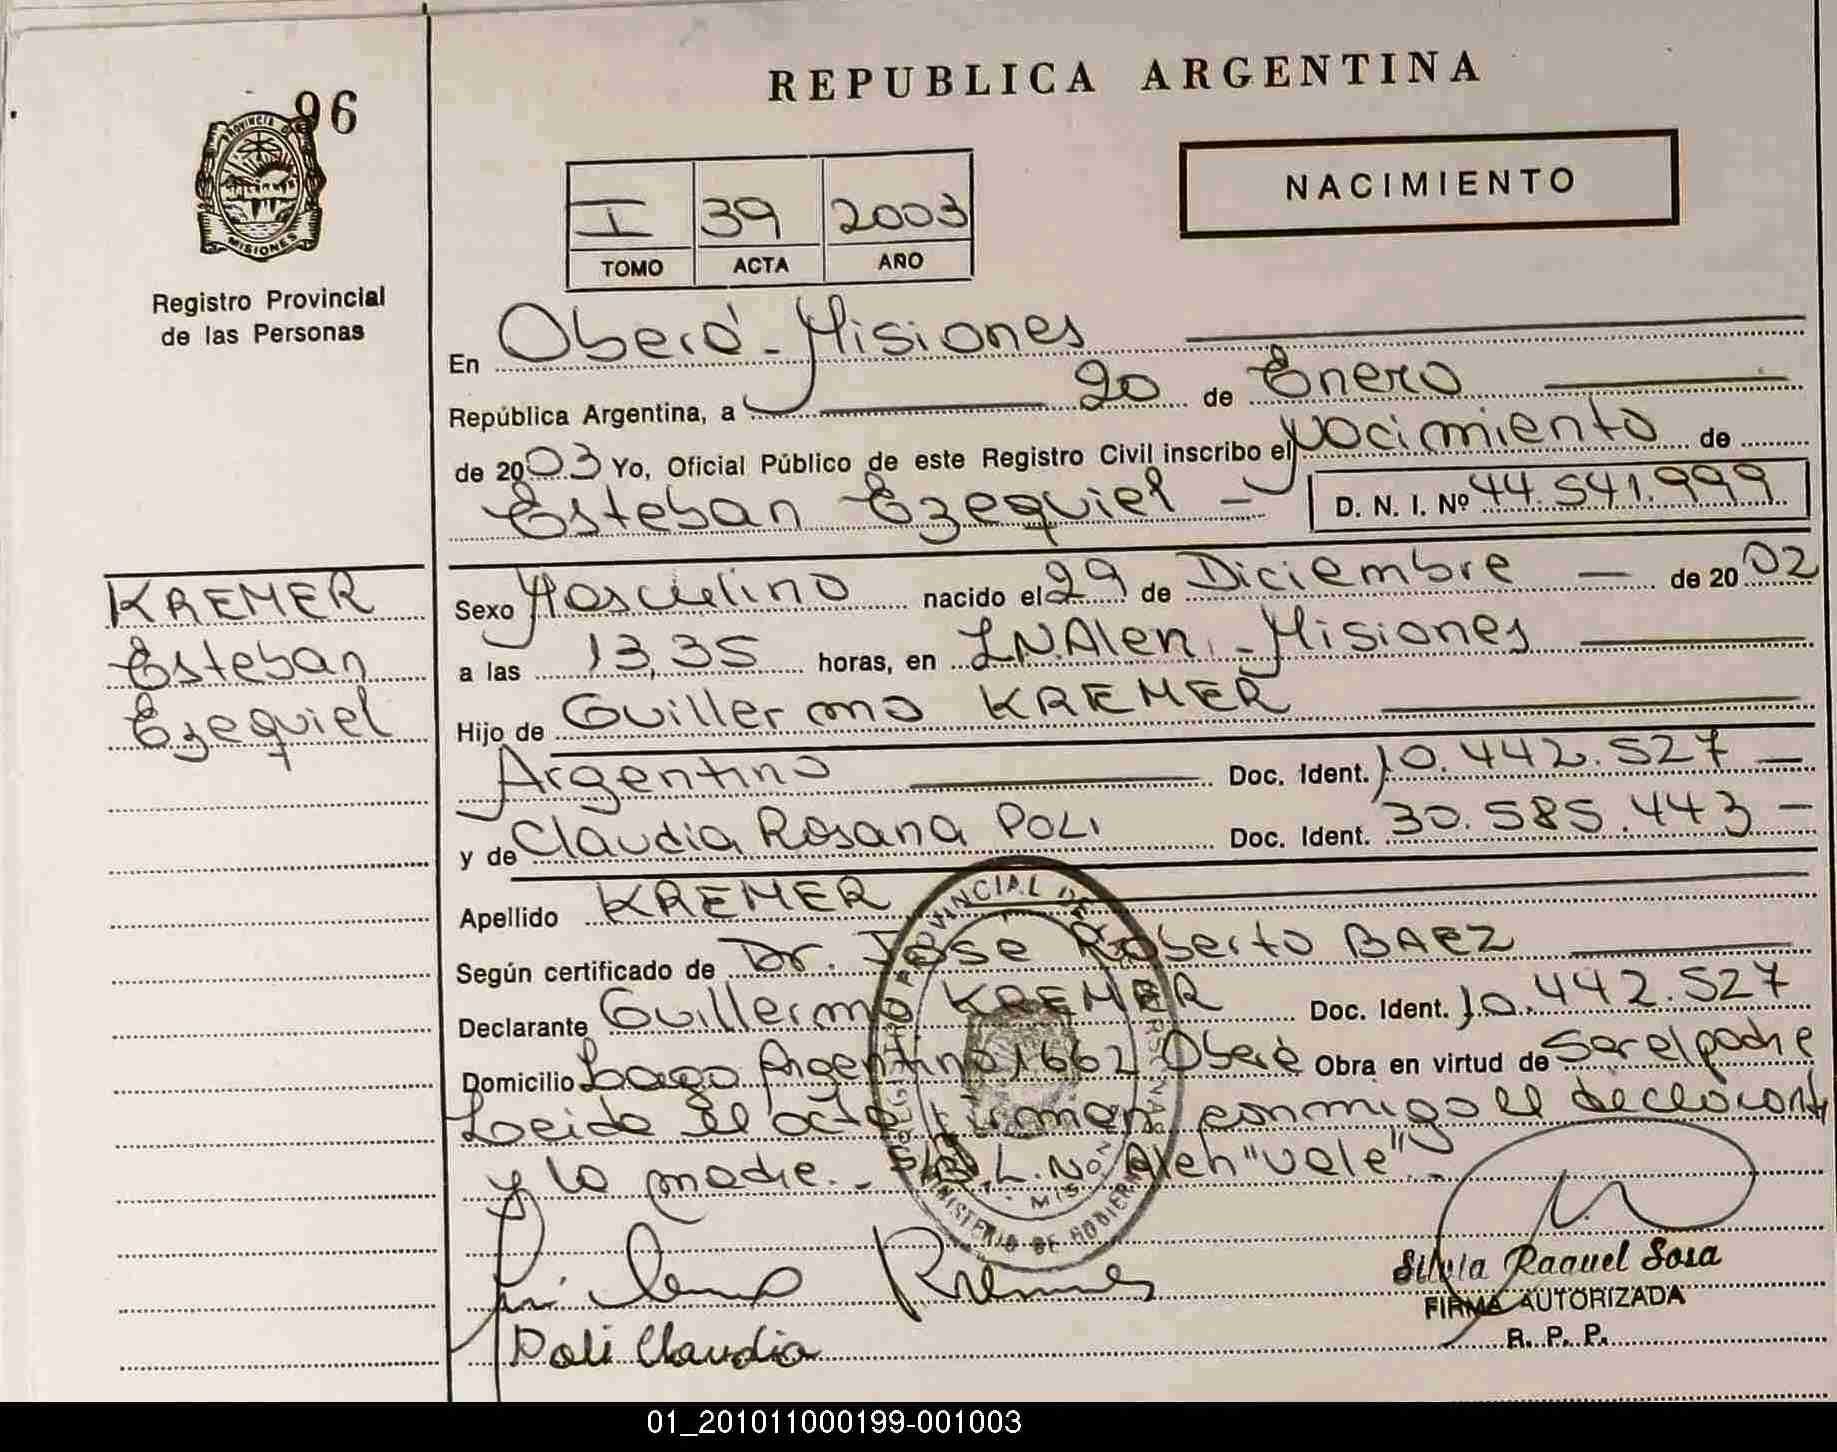 REPUBLICA ARGENTINA
96
PROVINCIA DE
MISIONES
Registro Provincial
de las Personas
I 39 2003
TOMO ACTA AÑO
NACIMIENTO
En Oberá - Misiones
República Argentina, a 20 de Enero
de 2003 Yo, Oficial Público de este Registro Civil inscribo el Nacimiento de
Esteban Ezequiel - D. N. I. Nº 44.541.999
KREMER
Esteban
Ezequiel
Sexo Masculino nacido el 29 de Diciembre - de 2002
a las 13,35 horas, en L.N.Alen. - Misiones
Hijo de Guillermo KREMER
Argentino Doc. Ident. 10.442.527 -
y de Claudia Rosana POLI Doc. Ident. 30.585.443 -
Apellido KREMER
Según certificado de Dr. Jose Roberto BAEZ
Declarante Guillermo KREMER Doc. Ident. 10.442.527
Domicilio Lago Argentino 1662 Oberá Obra en virtud de Ser el padre
Leida el acta firman conmigo el declarante
y la madre. - L.N. Alen "vale" -
PROVINCIAL DE
MINISTERIO DE GOBIERNO
MIS
Kremer
Poli Claudia
Silvia Raquel Sosa
FIRMA AUTORIZADA
R. P. P.
01_201011000199-001003